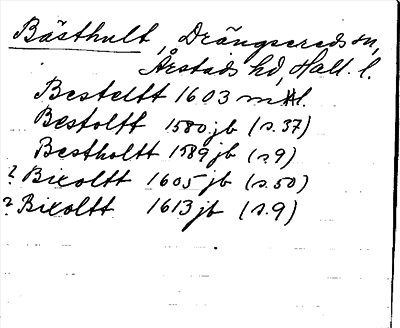 Bästhult, Drängsereds sn,
Årstads hd, Hall. l.
Besteltt 1603 mtl.
Bestoltt 1580 jb (s. 37)
Bestholtt 1589 jb (s 9)
? Bixoltt 1605 jb (s. 50)
? Bixoltt 1613 jb (s. 9)